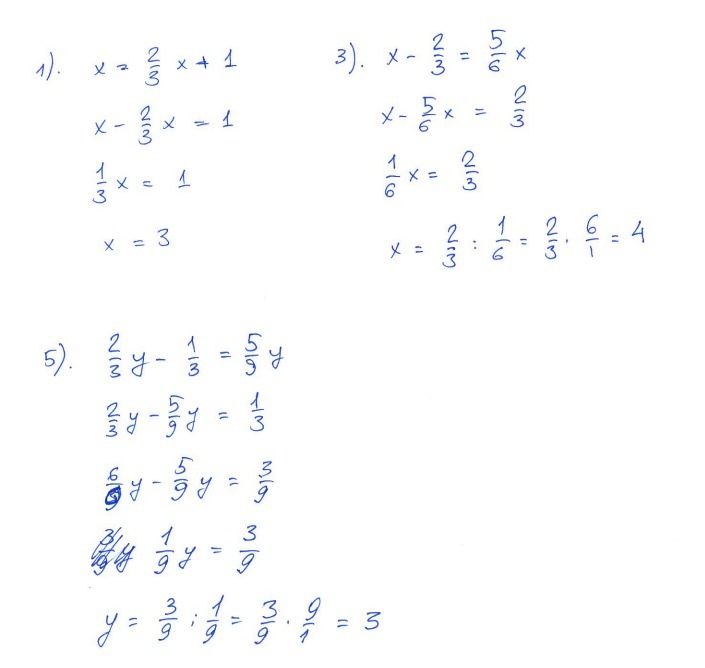 1). x = 2/3 x + 1
x - 2/3 x = 1
1/3 x = 1
x = 3
3). x - 2/3 = 5/6 x
x - 5/6 x = 2/3
1/6 x = 2/3
x = 2/3 : 1/6 = 2/3 · 6/1 = 4
5). 2/3 y - 1/3 = 5/9 y
2/3 y - 5/9 y = 1/3
6/9 y - 5/9 y = 3/9
1/9 y = 3/9
y = 3/9 : 1/9 = 3/9 · 9/1 = 3